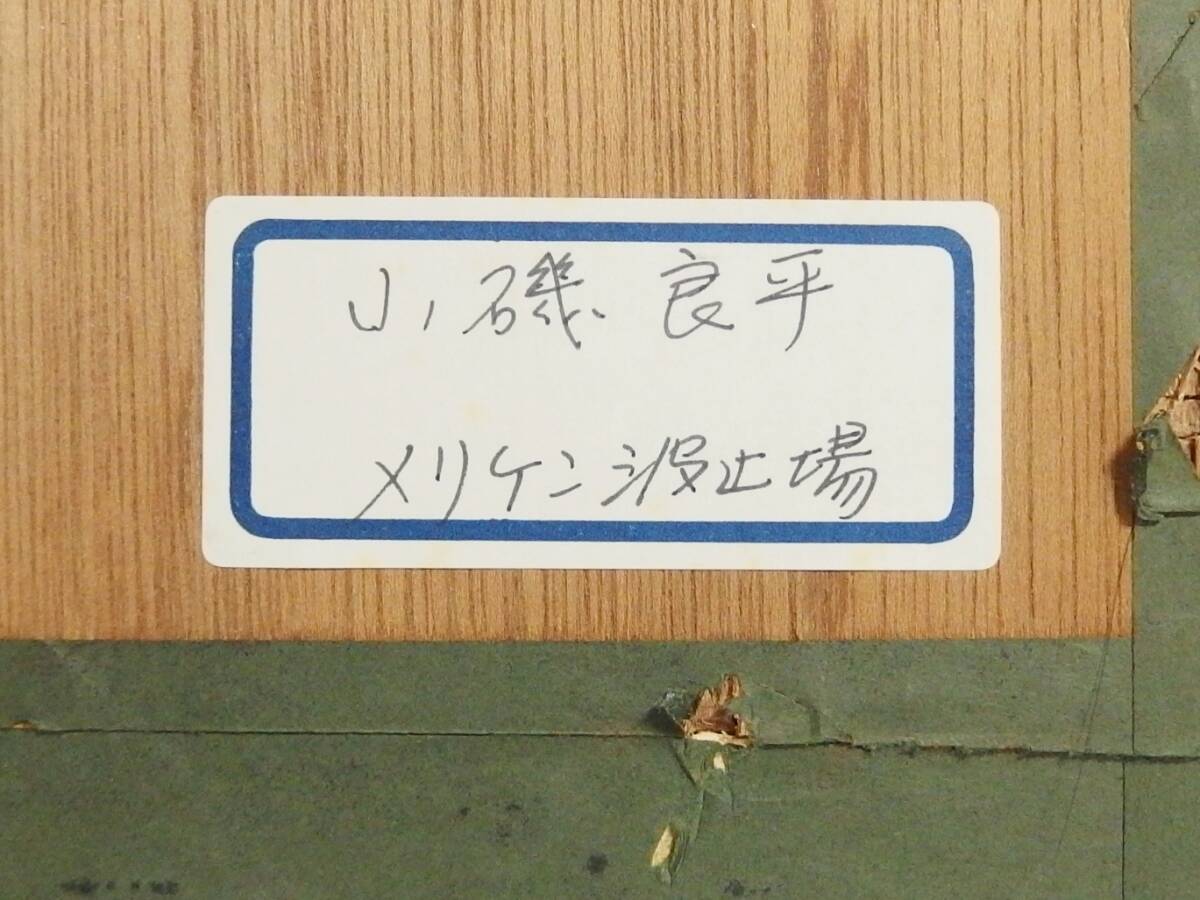 小磯良平
メリケン波止場